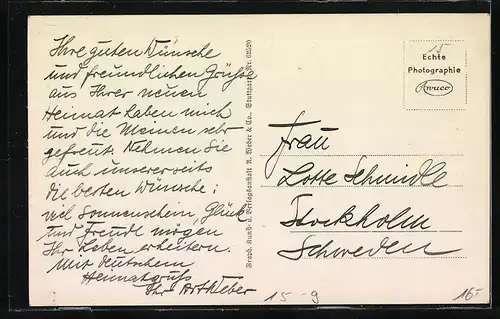 Ihre guten Wünsche
und freundlichen Grüsse
aus Ihrer neuen
Heimat haben mich
und die Meinen sehr
gefreut. Nehmen Sie
auch unsererseits
die besten Wünsche:
viel Sonnenschein, Glück
und Freude mögen
Ihr Leben erheitern.
Mit deutschem
Heimatgruss
Ihr
Graph. Kunst- u. Verlagsanstalt A. Weber & Co., Stuttgart Nr. 62520
15
Echte
Photographie
Awuco
Frau
Lotte Schmidle
Stockholm
Schweden
15-9
16-